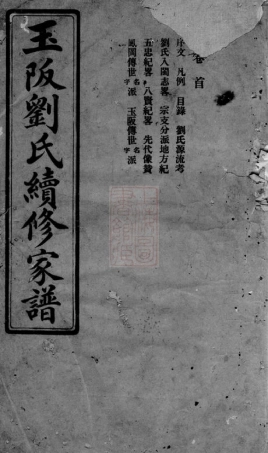 玉阪劉氏續修家譜
卷首
序文 凡例 目錄 劉氏源流考
劉氏入閩志畧 宗支分派地方紀
五忠紀畧 八賢紀畧 先代像贊
閩傳世名字派 玉阪傳世名字派